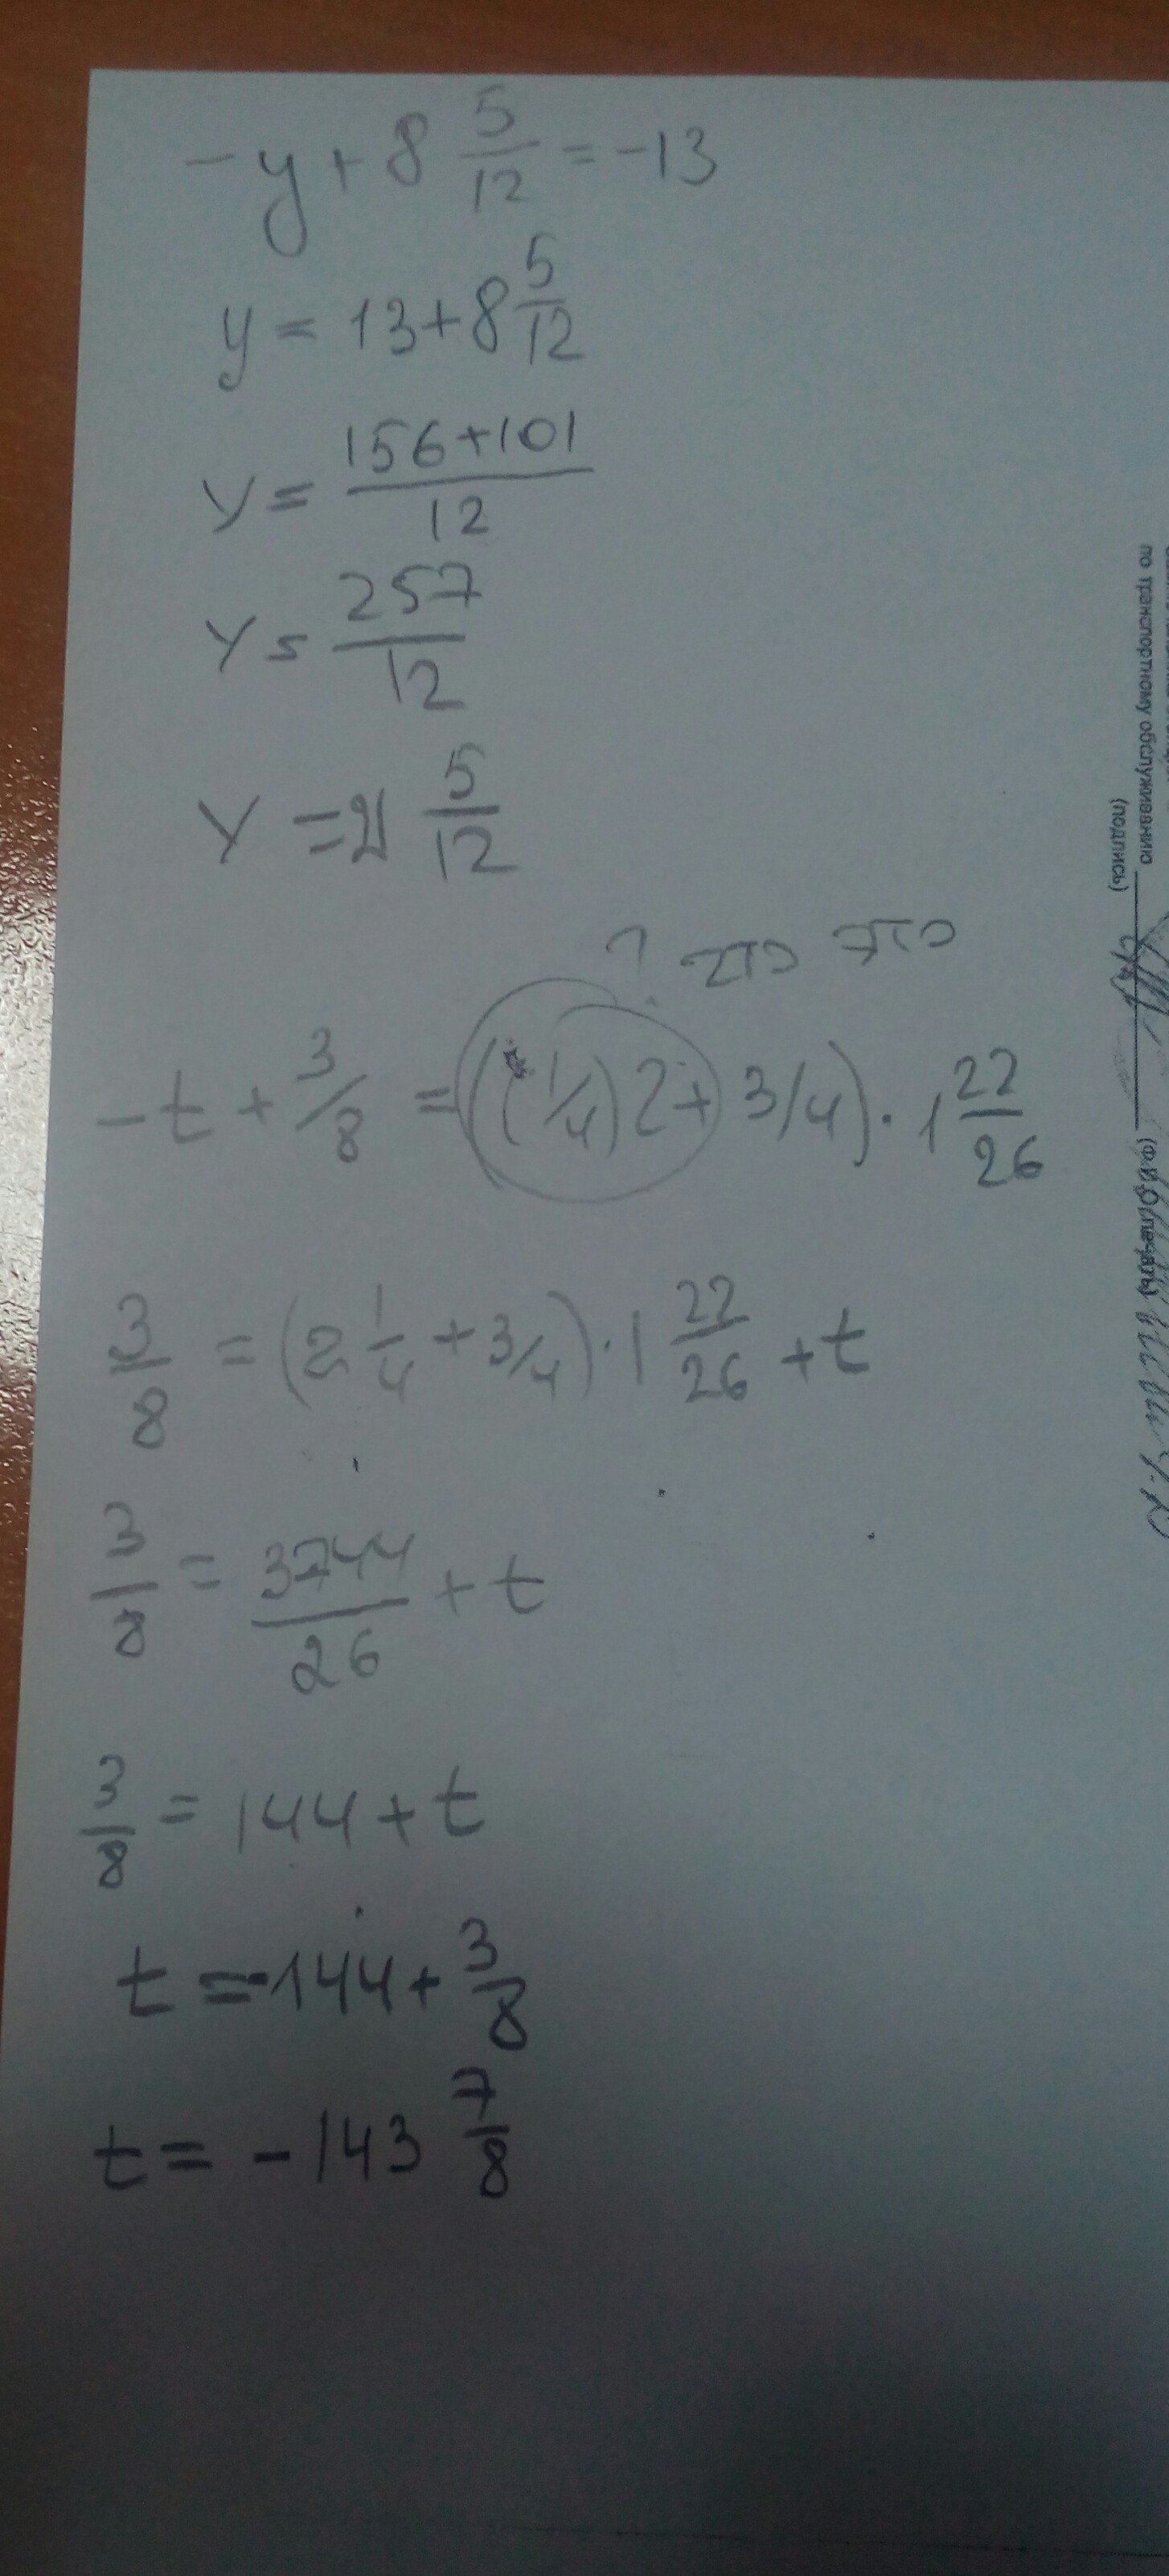 -y + 8 5/12 = -13
y = 13 + 8 5/12
y = 156+101/12
y = 257/12
y = 21 5/12
? это
-t + 3/8 = ((1/4)2 + 3/4) · 1 22/26
3/8 = (2 1/4 + 3/4) · 1 22/26 + t
3/8 = 3744/26 + t
3/8 = 144 + t
t = -144 + 3/8
t = -143 7/8
по транспортному обслуживанию
(подпись)